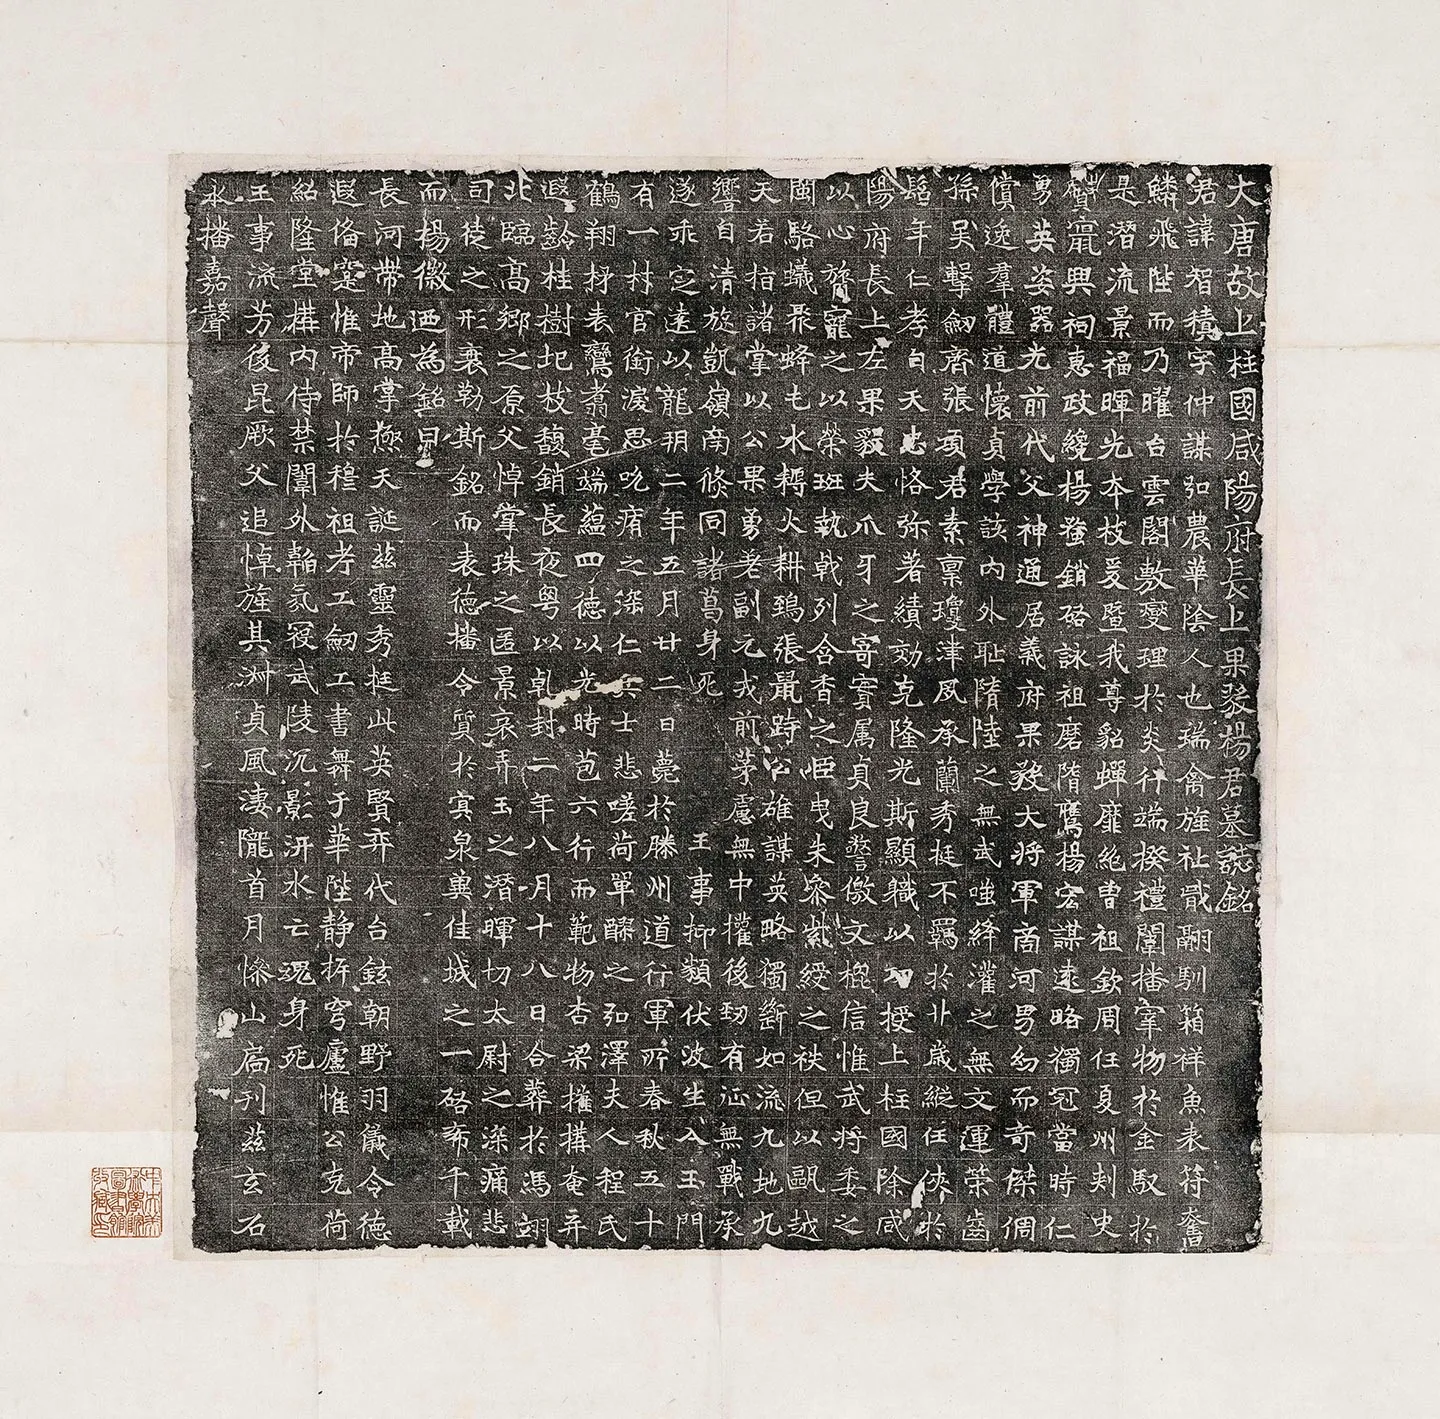 大唐故上柱國咸陽府長上果毅楊君墓誌銘
君諱智積字仲謀弘農華陰人也瑞禽旌祉戢翮馴箱祥魚表符奮
鱗飛陛而乃曜台雲閣敷燮理於炎行端揆禮闈播宰物於金馭於
是潛流景福暉光本枝爰暨我尊貂蟬靡絕曾祖欽周任夏州刾史
寵興祠惠政纔楊蛰銷硌詠祖磨隋鷹楊宏謀遠略獨冠當時仁
勇英姿器光前代父神通居義府果毅大將軍商河男幼而奇傑倜
儻逸羣體道懷貞學該內外耻隋陸之無武嗤絳灌之無文運榮齒
孫吴擊劒齊張頊君素禀瓊津夙承蘭秀挺不羈於丱歲縱任俠於
髫年仁孝自天忠恪弥著績効克隆光斯顯職以授上柱國除咸
陽府長上左果毅夫爪牙之寄寔属貞良警儌文槐信惟武將委之
以心膂寵之以榮班執戟列含香之曳朱叅紫綬之袟但以甌越
閩駱蟻聚蜂屯水耨火耕鵄張鼠跱公雄謀英略獨斷如流九地九
天若指諸掌以公果勇若副元戎前茅慮無中權後勁有征無戰承
響自清旋凱嶺南倐同諸葛身死王事抑類伏波生入玉門
遂乖定遠以龍朔二年五月廿二日薨於勝州道行軍所春秋五十
有一村官銜渡思吮癰之深仁士悲嗟荷單醪之弘澤夫人程氏
鶴翔抒表鸞翥毫端蘊四德以光時苞六行而範物杏梁摧搆奄弃
遐齡桂樹圮枝馥銷長夜粤以乹封二年八月十八日合葬於馮翊
北臨高鄉之原父悼掌珠之匿景哀弄玉之潛暉切太尉之深痛悲
司徒之形衰勒斯銘而表德播令質於寘泉冀佳城之一硌希千載
而楊徽迺為銘曰
長河帶地高掌極天誕兹靈秀挺此英賢弈代台鉉朝野羽儀令德
遐俻寔惟帝師於穆祖考工劒工書舞于華陛静㭊穹廬惟公克荷
紹隆堂搆內侍禁闈外韜氛祲武陵沉影汧水亡魂身死
王事流芳後昆厥父追悼旌其淋貞風淒隴首月慘山扃刊兹玄石
永播嘉聲